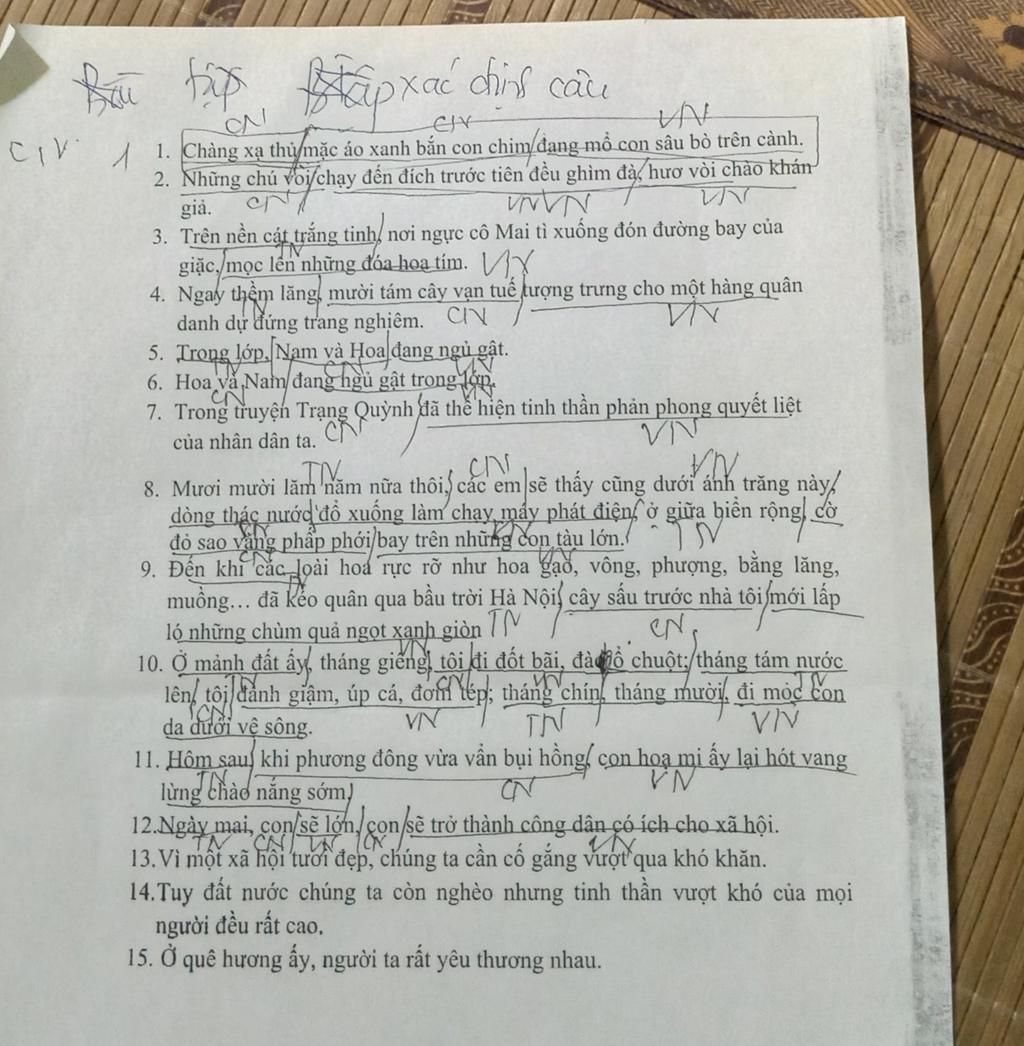 Bài tập Bài tập xác định câu
CN CN VN
C1V: 1 1. Chàng xạ thủ/mặc áo xanh bắn con chim/đang mổ con sâu bò trên cành.
2. Những chú voi/chạy đến đích trước tiên đều ghìm đà,/hươ vòi chào khán
giả. CN VN VN VN
3. Trên nền cát trắng tinh,/nơi ngực cô Mai tì xuống đón đường bay của
TN
giặc,/mọc lên những đóa hoa tím. VN
4. Ngay thềm lăng,/mười tám cây vạn tuế/tượng trưng cho một hàng quân
TN
danh dự đứng trang nghiêm. CN VN
5. Trong lớp,/Nam và Hoa/đang ngủ gật.
TN CN VN
6. Hoa và Nam/đang ngủ gật trong lớp.
CN VN
7. Trong truyện Trạng Quỳnh/đã thể hiện tinh thần phản phong quyết liệt
của nhân dân ta. CN VN
TN CN VN
8. Mươi mười lăm năm nữa thôi,/các em/sẽ thấy cũng dưới ánh trăng này,/
dòng thác nước/đổ xuống làm chạy máy phát điện,/ở giữa biển rộng,/cờ
CN VN TN
đỏ sao vàng phấp phới/bay trên những con tàu lớn.
CN VN
9. Đến khi các loài hoa rực rỡ như hoa gạo, vông, phượng, bằng lăng,
muồng… đã kéo quân qua bầu trời Hà Nội,/cây sấu trước nhà tôi/mới lấp
ló những chùm quả ngọt xanh giòn TN CN
VN
10. Ở mảnh đất ấy,/tháng giêng,/tôi/đi đốt bãi, đào ổ chuột;/tháng tám nước
CN VN TN
lên,/tôi/đánh giậm, úp cá, đơm tép;/tháng chín,/tháng mười,/đi móc con
CN VN TN VN
da dưới vệ sông.
11. Hôm sau,/khi phương đông vừa vẩn bụi hồng,/con họa mi ấy lại hót vang
TN CN VN
lừng chào nắng sớm/
12.Ngày mai, con/sẽ lớn,/con/sẽ trở thành công dân có ích cho xã hội.
TN CN VN CN VN
13.Vì một xã hội tươi đẹp, chúng ta cần cố gắng vượt qua khó khăn.
14.Tuy đất nước chúng ta còn nghèo nhưng tinh thần vượt khó của mọi
người đều rất cao.
15. Ở quê hương ấy, người ta rất yêu thương nhau.